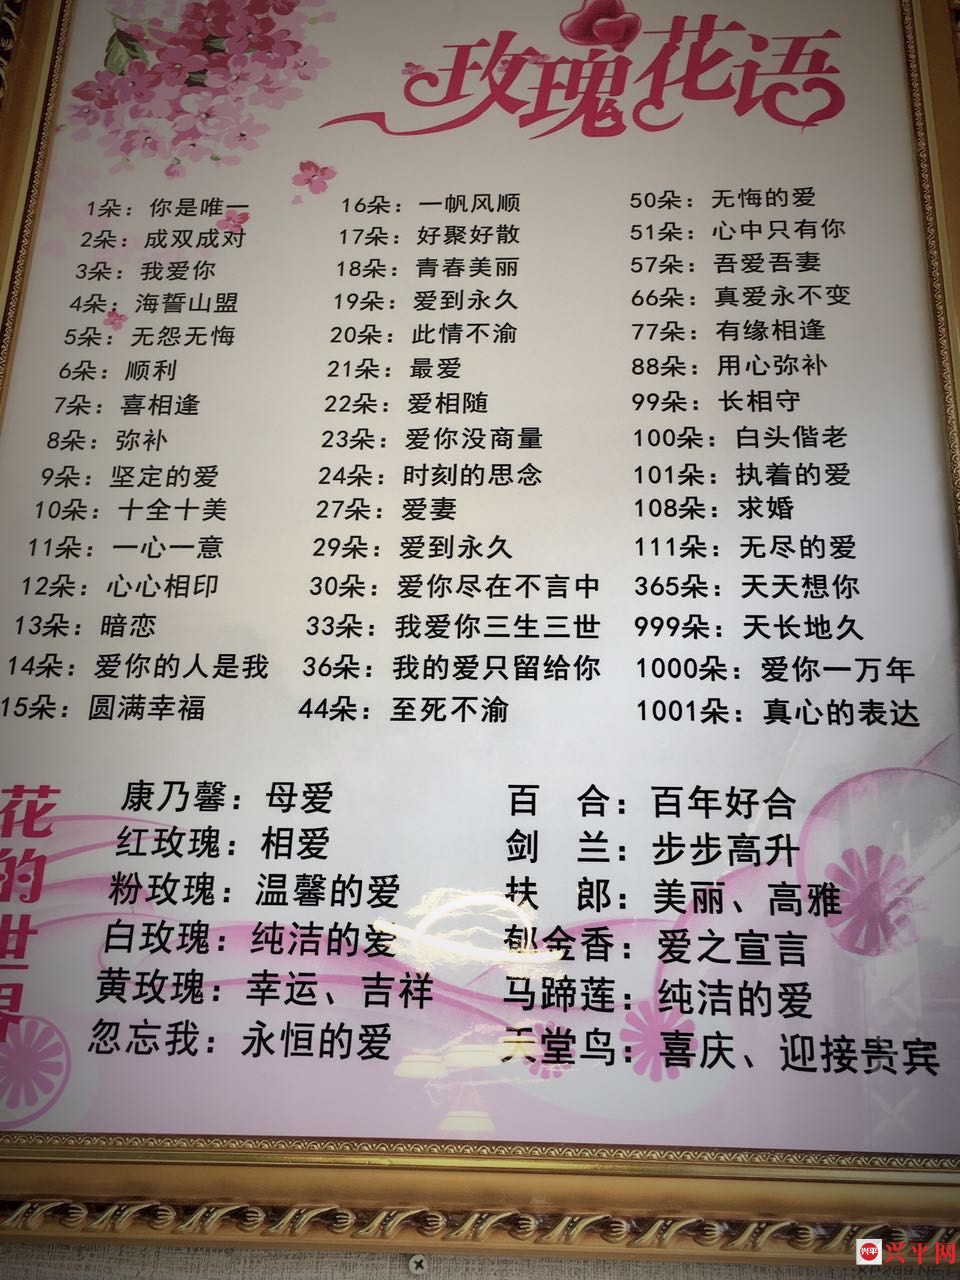 玫瑰花语
1朵：你是唯一
2朵：成双成对
3朵：我爱你
4朵：海誓山盟
5朵：无怨无悔
6朵：顺利
7朵：喜相逢
8朵：弥补
9朵：坚定的爱
10朵：十全十美
11朵：一心一意
12朵：心心相印
13朵：暗恋
14朵：爱你的人是我
15朵：圆满幸福
16朵：一帆风顺
17朵：好聚好散
18朵：青春美丽
19朵：爱到永久
20朵：此情不渝
21朵：最爱
22朵：爱相随
23朵：爱你没商量
24朵：时刻的思念
27朵：爱妻
29朵：爱到永久
30朵：爱你尽在不言中
33朵：我爱你三生三世
36朵：我的爱只留给你
44朵：至死不渝
50朵：无悔的爱
51朵：心中只有你
57朵：吾爱吾妻
66朵：真爱永不变
77朵：有缘相逢
88朵：用心弥补
99朵：长相守
100朵：白头偕老
101朵：执着的爱
108朵：求婚
111朵：无尽的爱
365朵：天天想你
999朵：天长地久
1000朵：爱你一万年
1001朵：真心的表达
花的世界
康乃馨：母爱
红玫瑰：相爱
粉玫瑰：温馨的爱
白玫瑰：纯洁的爱
黄玫瑰：幸运、吉祥
忽忘我：永恒的爱
百 合：百年好合
剑 兰：步步高升
扶 郎：美丽、高雅
郁金香：爱之宣言
马蹄莲：纯洁的爱
天堂鸟：喜庆、迎接贵宾
兴平 兴平网
XP269.NET